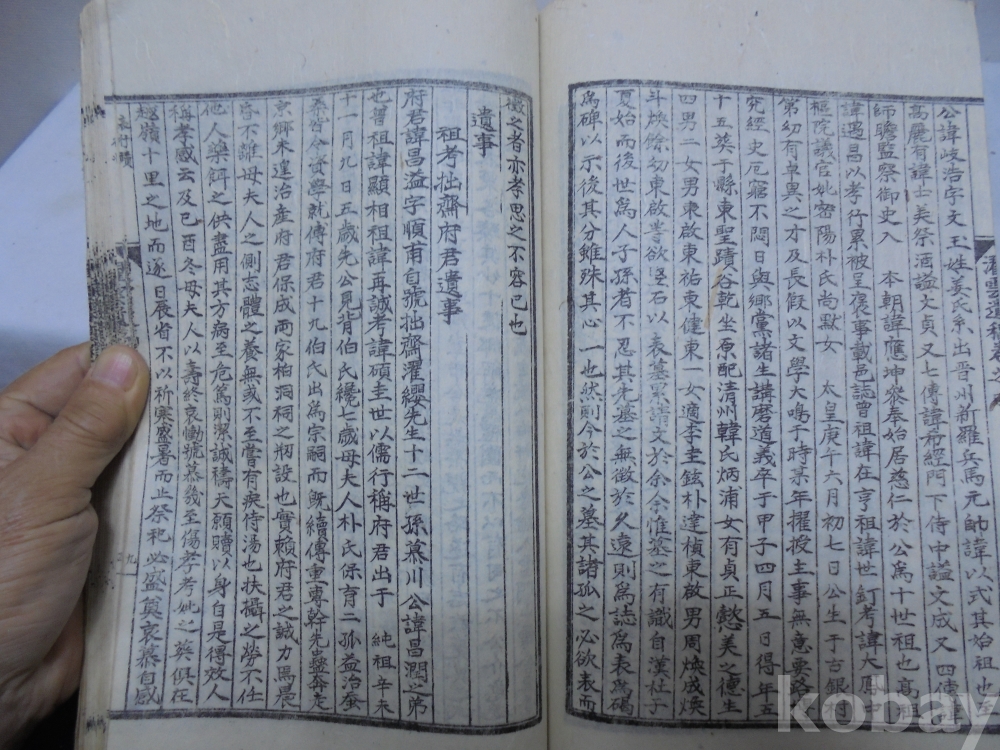 公諱岐浩字文玉姓姜氏系出晋州新羅兵馬元帥諱以式其始祖也至
高麗有諱士美祭酒謚文貞又七傳諱希經門下侍中謚文成又四傳諱
師瞻監察御史入 本朝諱應坤參奉始居慈仁於公爲十世祖也高祖
諱遇昌以孝行累被呈褒事載邑誌曾祖諱在亨祖諱世釘考諱大馬中
樞院議官妣密陽朴氏尚默女 太皇庚午六月初七日公生于古銀村
第幼有卓異之才及長假以文學大鳴于時某年擢授主事無意要路
究經史厄窮不悶日與鄉黨諸生講磨道義卒于甲子四月五日得年五
十五葬于縣東聖蹟谷乾坐原配清州韓氏炳浦女有貞正懿美之德生
四男二女男東啟東祐東健東一女適李圭鉉朴達楨東啟男周煥成煥
斗煥餘幼東啟書欲竪石以表墓累請文於余余惟墓之有識自漢杜子
夏始而後世爲人子孫者不忍其先墓之無徵於久遠則爲誌爲表爲碣
爲碑以示後其分雖殊其心一也然則今於公之墓其諸孤之必欲表而
徵之者亦孝思之不容已也
遺事
祖考拙齋府君遺事
府君諱昌溢字順甫自號拙齋濯纓先生十二世孫慕川公諱昌潤之弟
也曾祖諱顯相祖諱再誠考諱碩圭世以儒行稱府君出于 純祖辛未
十一月九日五歲先公見背伯氏纔七歲母夫人朴氏保育二孤益治蚕
桑皆令資學就傅府君十九伯氏出爲宗嗣而旣續傳重專幹先蠱奔走
京鄉未遑治産府君保成兩家柏洞祠之刱設也實賴府君之誠力焉晨
昏不離母夫人之側志體之養無或不至嘗有疾侍湯也扶攝之勞不任
他人藥餌之供盡用其方病至危篤則潔誠禱天願贖以身自是得效人
稱孝感云及己酉冬母夫人以壽終哀慟號慕幾至傷孝考妣之葬俱在
嶺十里之地而逐日展省不以祈寒盛暑而止祭祀必盛奠哀慕自感
九
kobay